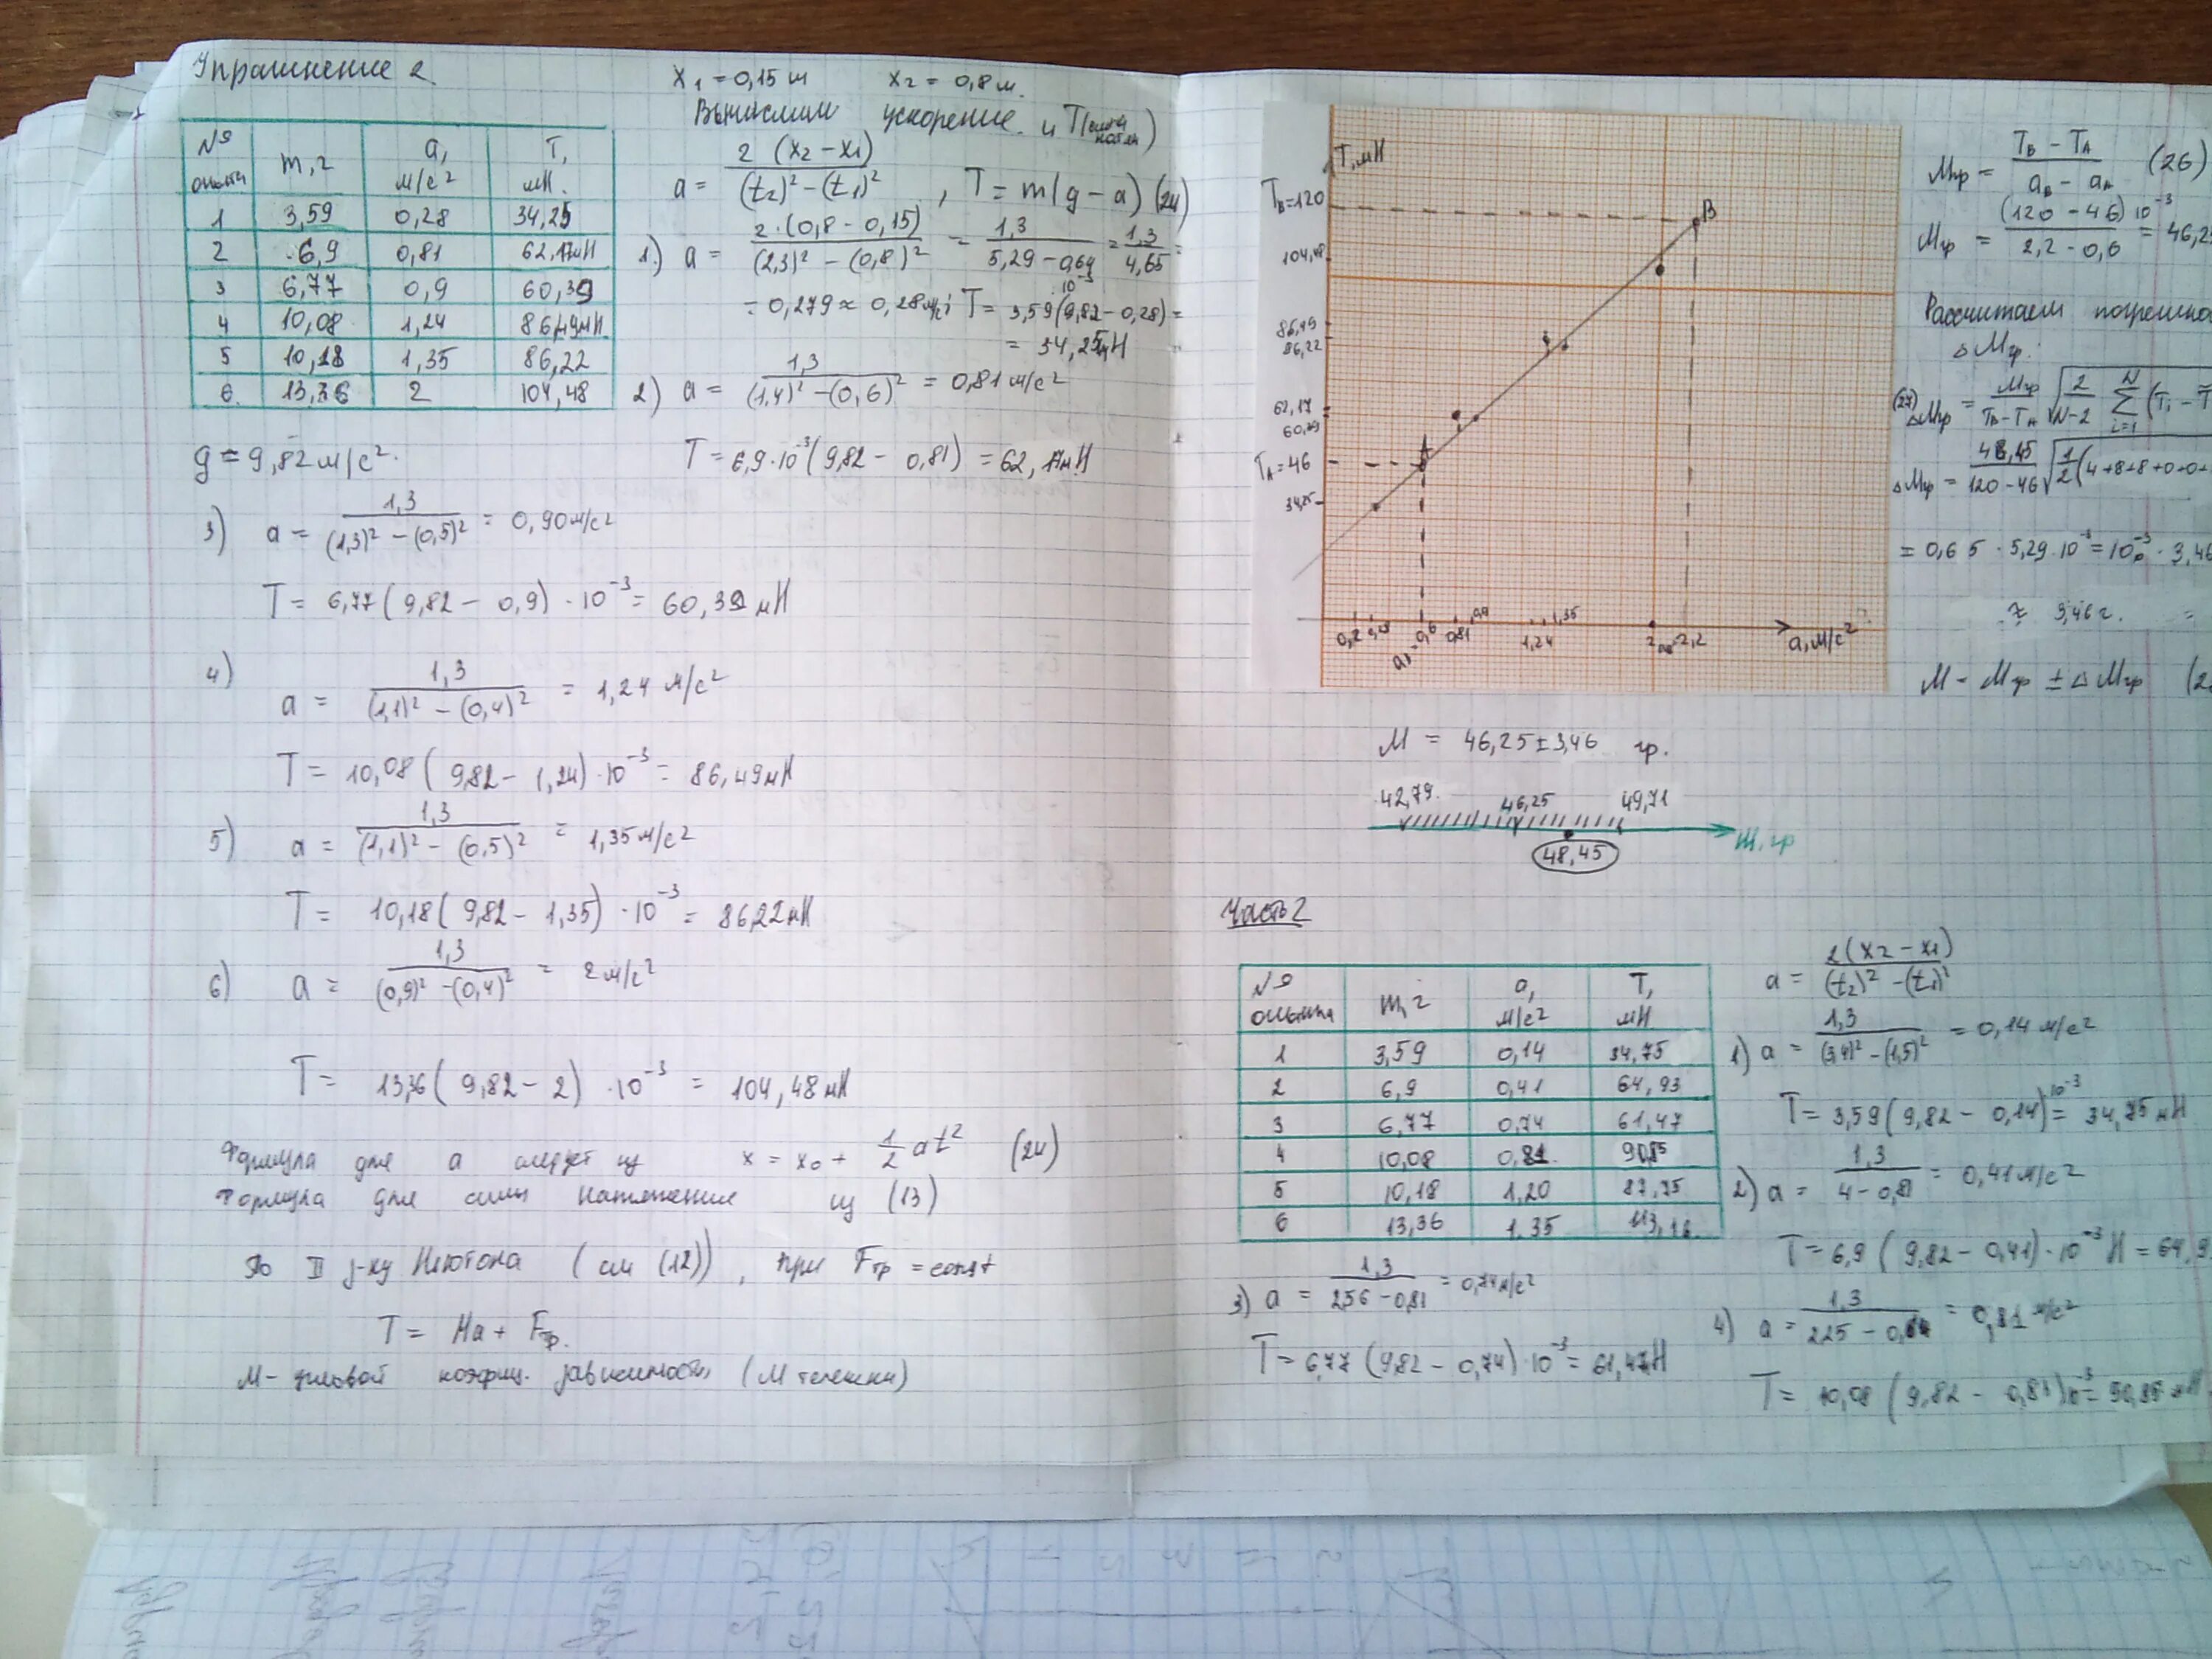 Упражнение 2.
x₁ = 0,15 м x₂ = 0,8 м.
Вычислим ускорение и T (силы натяж)
№ опыта m, г a, м/с² T, мН.
1 3,59 0,28 34,25
2 6,9 0,81 62,17мН
3 6,77 0,9 60,39
4 10,08 1,24 86,49мН
5 10,18 1,35 86,22
6. 13,36 2 104,48
g = 9,82 м/с².
a = 2 (x₂ – x₁) / (t₂)² – (t₁)² , T = m(g – a) (24)
1) a = 2·(0,8 – 0,15) / (2,3)² – (0,8)² = 1,3 / 5,29 – 0,64 = 1,3 / 4,65 =
= 0,279 ≈ 0,28 м/с²; T = 3,59(9,82 – 0,28) 10⁻³ =
= 34,25мН
2) a = 1,3 / (1,4)² – (0,6)² = 0,81 м/с²
T = 6,9·10⁻³(9,82 – 0,81) = 62,17мН
3) a = 1,3 / (1,3)² – (0,5)² = 0,90 м/с²
T = 6,77(9,82 – 0,9)·10⁻³ = 60,39 мН
4) a = 1,3 / (1,1)² – (0,4)² = 1,24 м/с²
T = 10,08(9,82 – 1,24)·10⁻³ = 86,49мН
5) a = 1,3 / (1,1)² – (0,5)² = 1,35 м/с²
T = 10,18(9,82 – 1,35)·10⁻³ = 86,22мН
6) a = 1,3 / (0,9)² – (0,4)² = 2 м/с²
T = 13,36(9,82 – 2)·10⁻³ = 104,48мН
Формула для a следует из x = x₀ + 1/2 at² (24)
Формула для силы натяжения из (13)
По II з-ну Ньютона (см (12)), при Fтр = const
T = Ma + Fтр.
M – угловой коэффиц. зависимости (M тележки)
T, мН
Tв=120
104,48
86,49
86,22
62,17
60,39
Tа=46
34,25
A
B
0,2 0,28 aа=0,6 0,81 0,9 1,24 1,35 2 aв=2,2 a, м/с²
Mгр = Tв – Tа / aв – aа (26)
Mгр = (120 – 46) 10⁻³ / 2,2 – 0,6 = 46,25
Рассчитаем
ΔMгр.
(27) ΔMгр = Mгр / Tв – Tа √ 2 / N–2 Σ N i=1 (Tᵢ –
ΔMгр = 48,45 / 120 – 46 √ 1/2 (4+8+8+0+0+
= 0,65 · 5,29·10⁻³ = 10⁻³ · 3,46
≈ 3,46 г. =
M = Mгр ± ΔMгр
M = 46,25 ± 3,46 гр.
42,79 46,25 49,71
m, гр
48,45
Часть 2
№ опыта m, г a, м/с² T, мН
1 3,59 0,14 34,75
2 6,9 0,41 64,93
3 6,77 0,74 61,47
4 10,08 0,81 90,85
5 10,18 1,20 87,75
6 13,36 1,35 113,16
a = 2(x₂ – x₁) / (t₂)² – (t₁)²
1) a = 1,3 / (3,4)² – (1,5)² = 0,14 м/с²
T = 3,59(9,82 – 0,14) 10⁻³ = 34,75 мН
2) a = 1,3 / 4 – 0,81 = 0,41 м/с²
T = 6,9(9,82 – 0,41)·10⁻³ Н = 64,9
3) a = 1,3 / 2,56 – 0,81 = 0,74м/с²
T = 6,77(9,82 – 0,74)·10⁻³ = 61,47Н
4) a = 1,3 / 2,25 – 0,64 = 0,81 м/с²
T = 10,08(9,82 – 0,81)10⁻³ = 90,85 мН